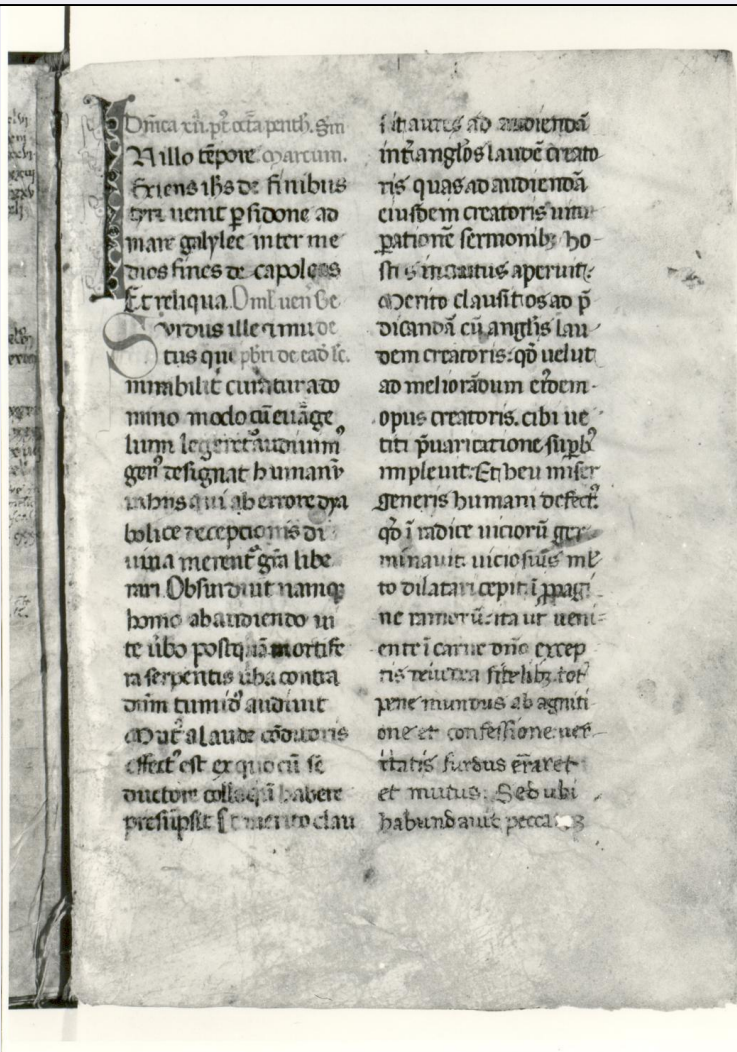 Dñica xii. pꝰ octa penth. Sm̄
N illo tēpore marcum.
Exiens ihs de finibus
tyri uenit ꝑ sidone ad
mare galylee inter me
dios fines decapoleos
Et reliqua. Oml uen̄ Be
Surdus ille ⁊ mu de
tus qui pbri de eād lc.
mirabilit̄ curatur a do
mino modo cū euāge
lium legeret̄ audiuimꝰ
genꝰ designat humanū
in his qui ab errore dya
bolice deceptionis di
uina merent̄ gr̄a libe
rari. Obsurduit namqꝫ
homo ab audiendo ui
te ūbo postquā mortife
ra serpentis ūba contra
deum tumidꝰ audiuit
Mutꝰ a laude cōditoris
effectꝰ est ex quo cū se
ductore colloquiū habere
presūpsit Et merito clau
sit aures ad audiendā
int̄ anglos laudē creato
ris quas ad audiendā
eiusdem creatoris uitu
ꝑationē sermonibꝫ ho
stis incautus aperuit.
Merito clausit os ad p̄
dicandā cū angl̄is lau
dem creatoris: qd̄ uelut
ad meliorādum eiꝰdem
opus creatoris. cibi ue
titi p̄uaricatione suꝑbꝰ
impleuit. Et heu miser
generis humani defectꝰ
qd̄ ī radice uiciorū ger
minauit. uiciosiꝰ ml̄
to dilatari cepit ī ꝓpagi
ne ramorū: ita ut ueni
ente ī carne dn̄o excep
tis de iudea fidelibꝫ totꝰ
pene mundus ab agniti
one et confessione ueri
tatis surdus eraret
et mutus. Sed ubi
habundauit